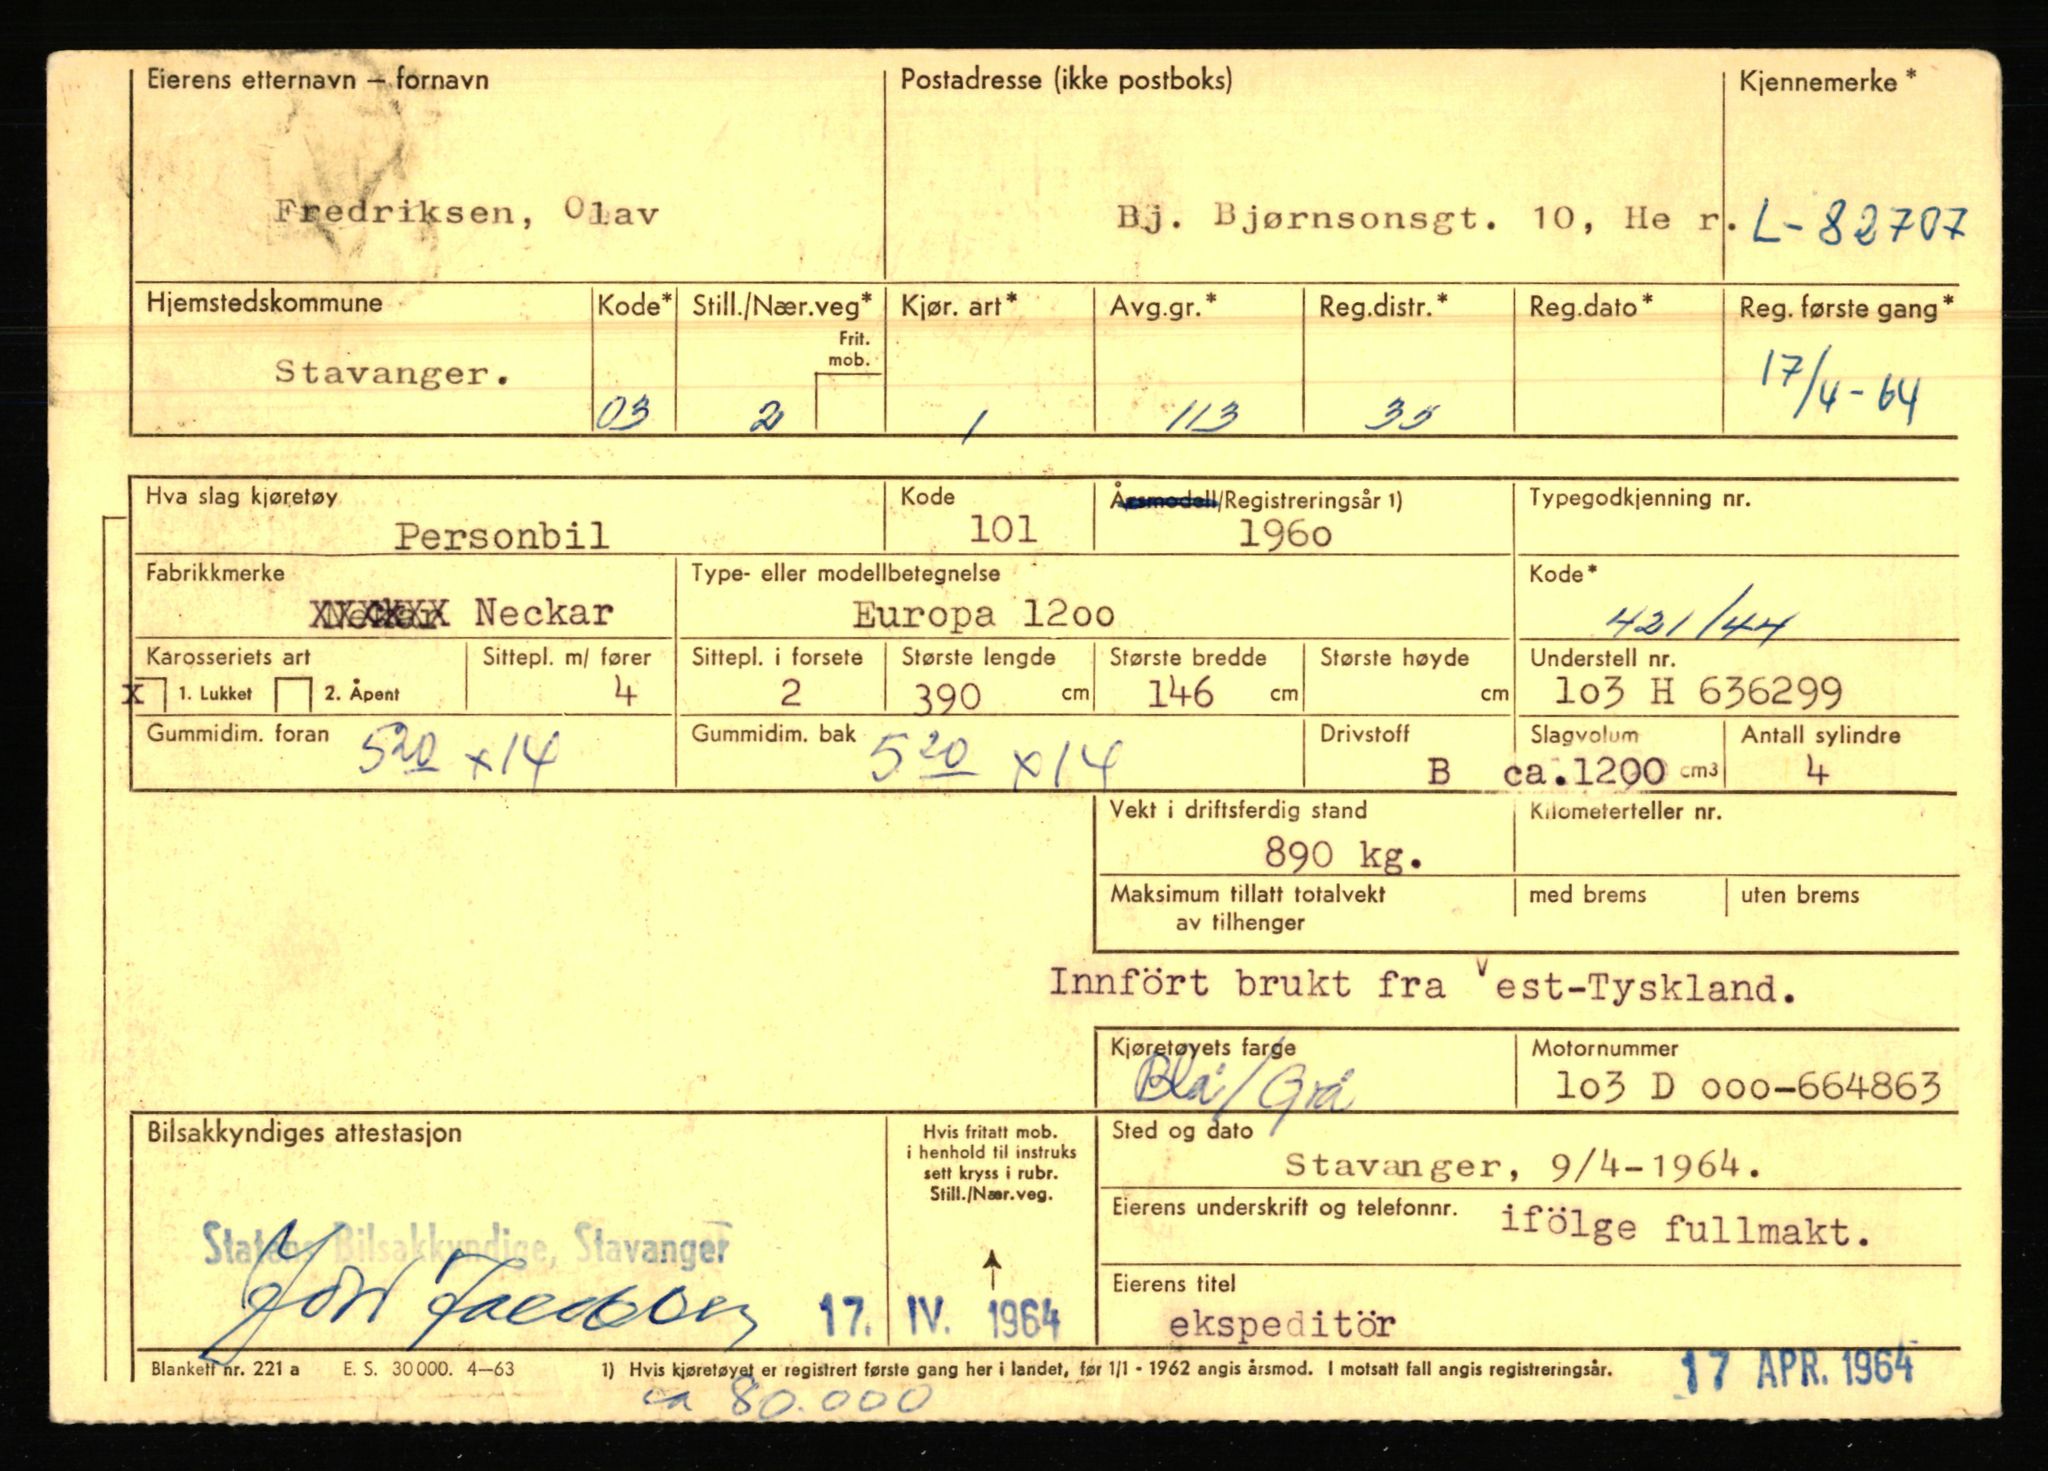 Eierens etternavn — fornavn Postadresse (ikke postboks) Kjennemerke*
Fredriksen, Olav Bj. Bjørnsonsgt. 10, He r. L-82707
Hjemstedskommune Kode* Still./Nær.veg* Kjør. art* Avg.gr.* Reg.distr.* Reg.dato* Reg. første gang*
Frit.
mob.
Stavanger. 03 2 1 113 35 17/4-64
Hva slag kjøretøy Kode Årsmodell/Registreringsår 1) Typegodkjenning nr.
Personbil 101 196o
Fabrikkmerke Type- eller modellbetegnelse Kode*
Neckar Europa 12oo 421/44
Karosseriets art Sittepl. m/ fører Sittepl. i forsete Største lengde Største bredde Største høyde Understell nr.
X 1. Lukket 2. Åpent 4 2 390 cm 146 cm cm 1o3 H 636299
Gummidim. foran Gummidim. bak Drivstoff Slagvolum Antall sylindre
520 x14 520 x14 B ca.1200 cm3 4
Vekt i driftsferdig stand Kilometerteller nr.
890 kg.
Maksimum tillatt totalvekt med brems uten brems
av tilhenger
Innfört brukt fra Vest-Tyskland.
Kjøretøyets farge Motornummer
Blå/Grå 1o3 D ooo-664863
Bilsakkyndiges attestasjon Hvis fritatt mob. Sted og dato
i henhold til instruks
sett kryss i rubr.
Still./Nær.veg.
Stavanger, 9/4-1964.
Eierens underskrift og telefonnr. ifölge fullmakt.
Statens Bilsakkyndige, Stavanger
Eierens titel
17. IV. 1964 ekspeditör
Blankett nr. 221 a E. S. 30 000. 4—63 1) Hvis kjøretøyet er registrert første gang her i landet, før 1/1 - 1962 angis årsmod. I motsatt fall angis registreringsår. 17 APR. 1964
ca 80.000